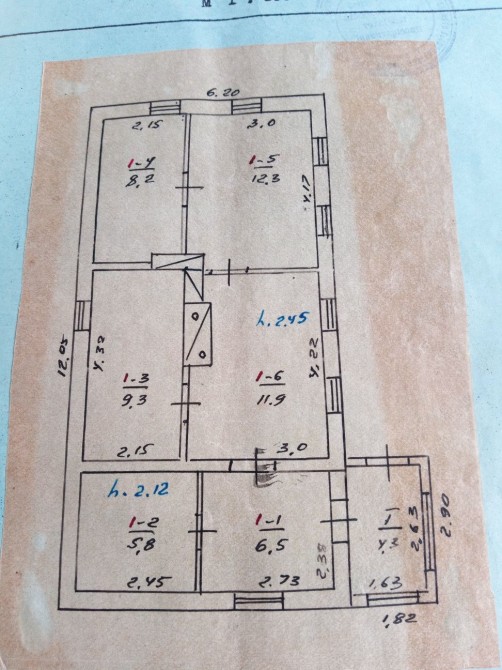 6.20
2,15
3,0
1-4
8,2
1-5
12.3
4.17
h. 2.45
12.05
4.32
4,22
1-3
9,3
1-6
11.9
2.15
3,0
h. 2.12
1-2
5,8
1-1
6,5
2,38
I
4,3
2,63
2.90
2.45
2.73
1,63
1,82